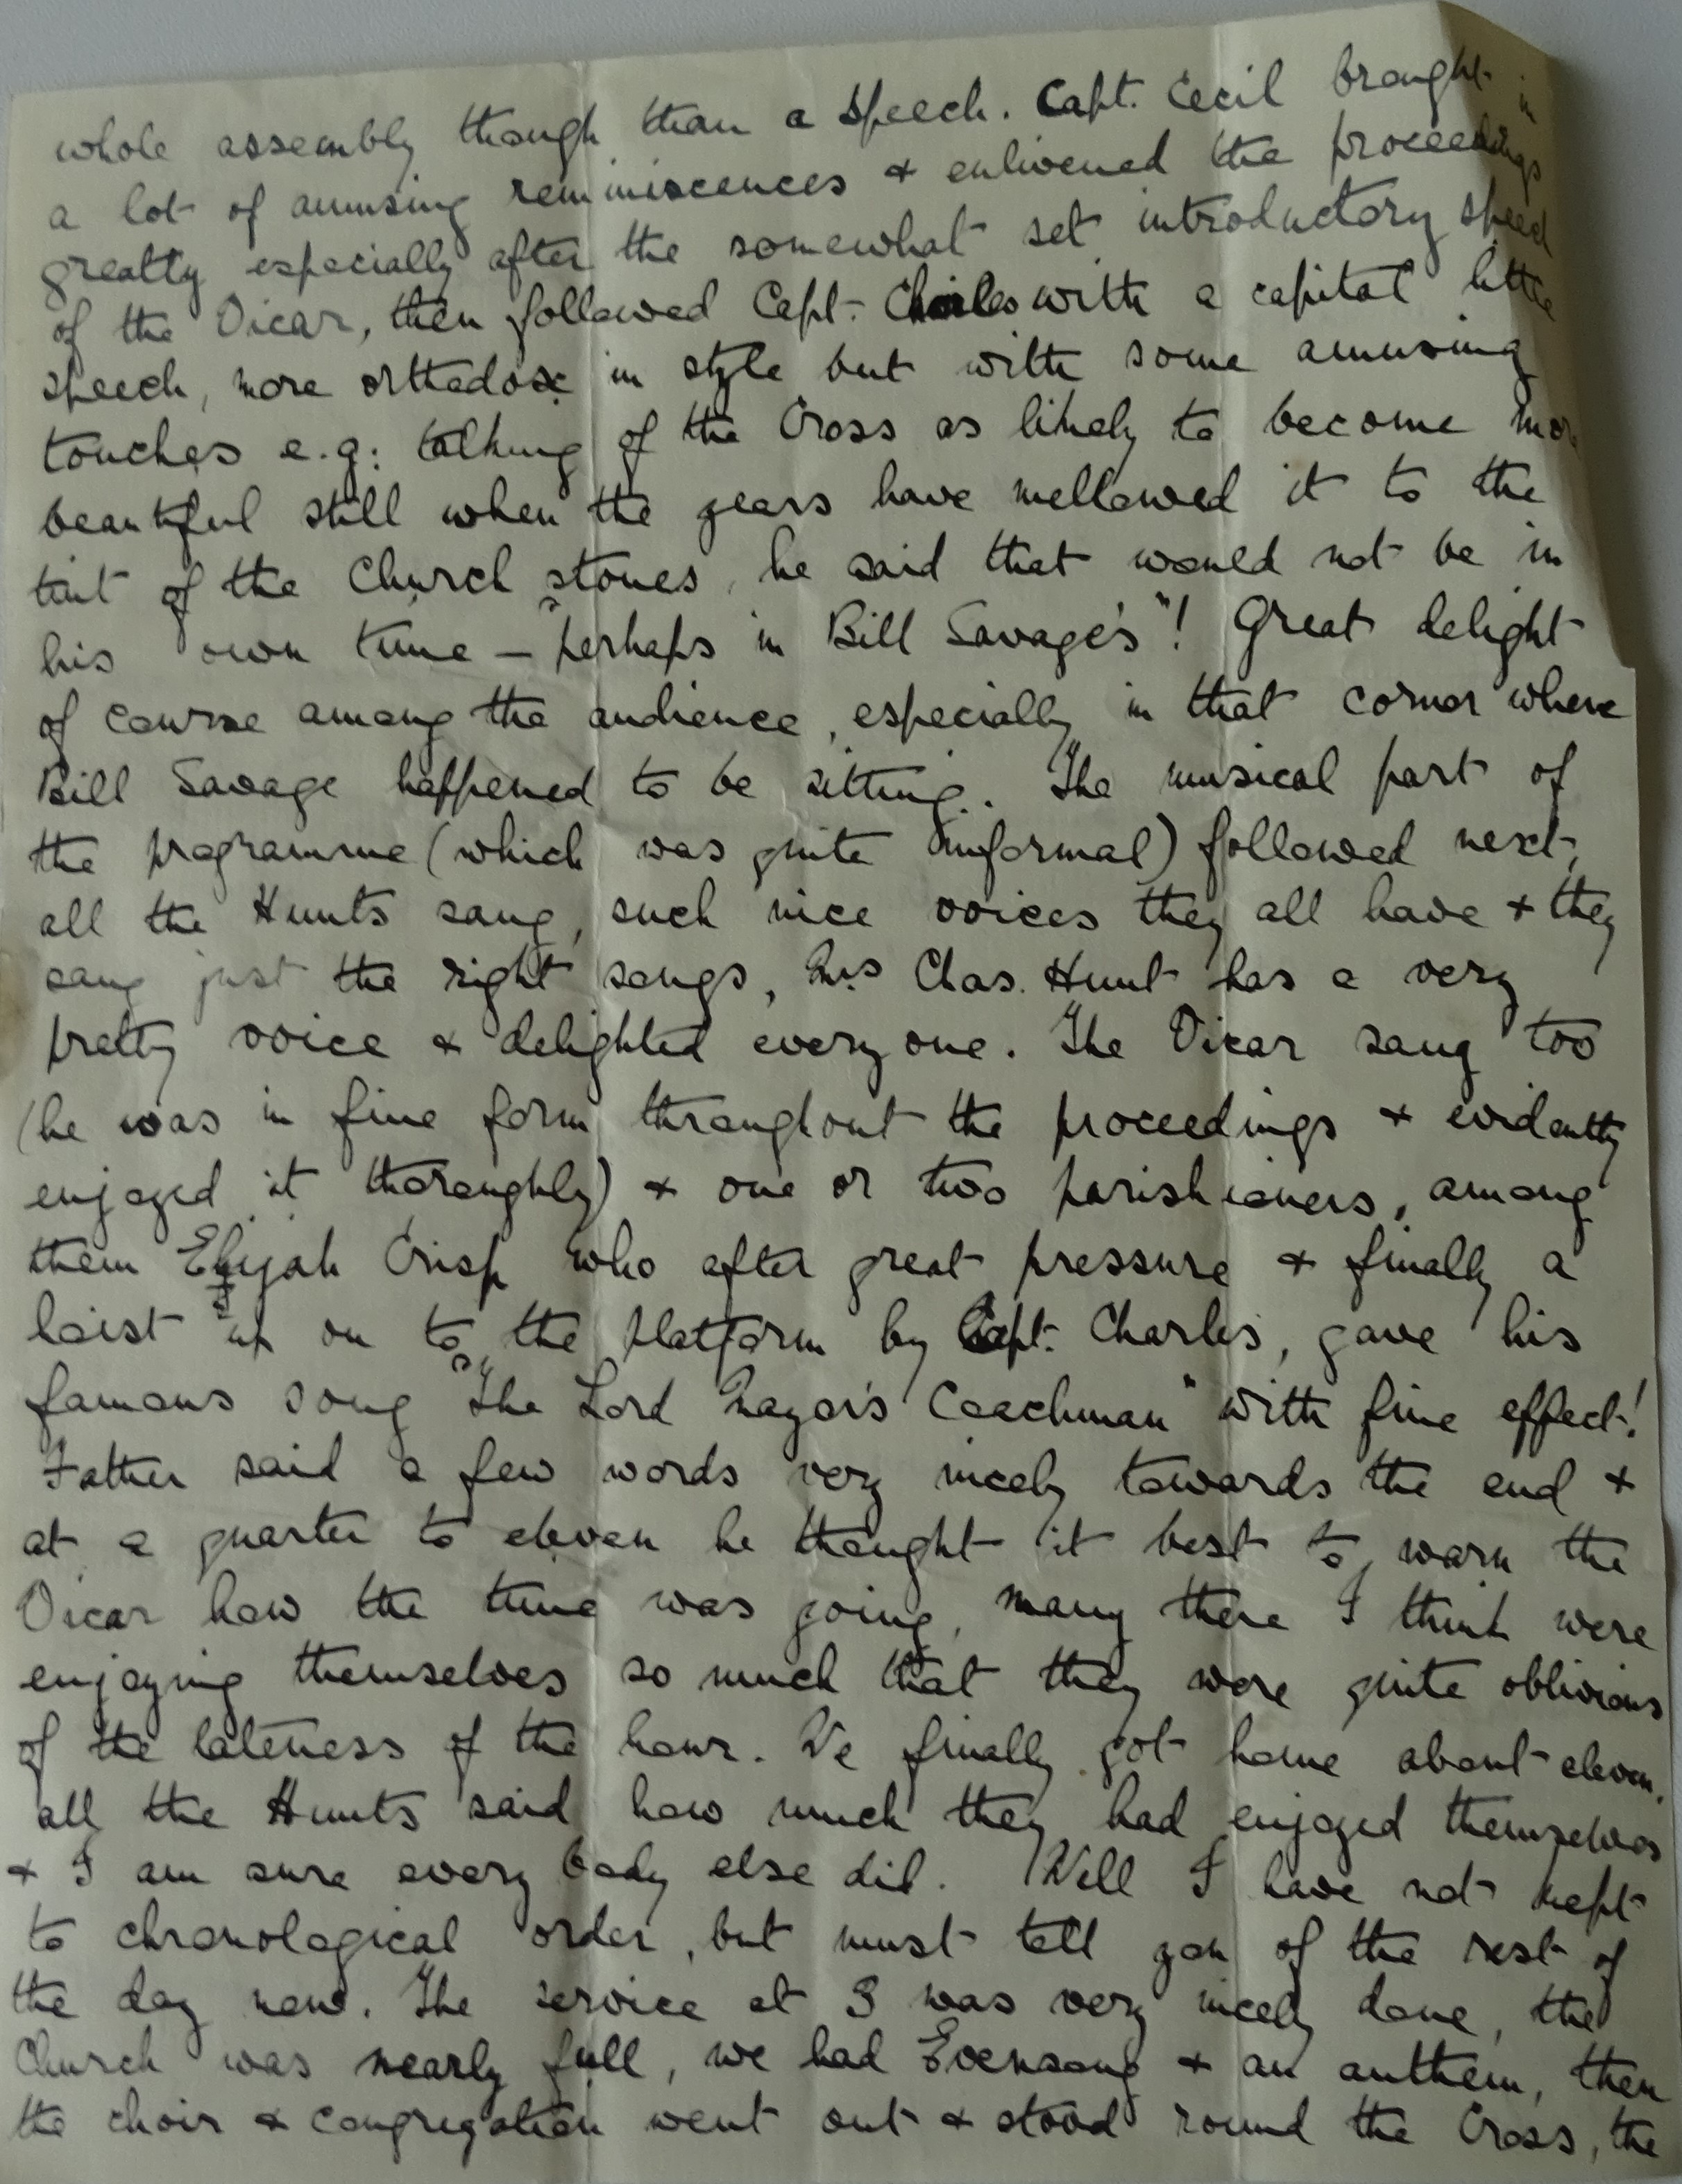 whole assembly though than a speech. Capt. Cecil brought in
a lot of amusing reminiscences & enlivened the proceedings
greatly especially after the somewhat set introductory speech
of the Vicar, then followed Capt. Charles with a capital little
speech, more orthodox in style but with some amusing
touches e.g: talking of the Cross as likely to become more
beautiful still when the years have mellowed it to the
tint of the Church stones, he said that would not be in
his own time – "perhaps in Bill Savage's"! Great delight
of course among the audience, especially in that corner where
Bill Savage happened to be sitting. The musical part of
the programme (which was quite informal) followed next,
all the Hunts sang, such nice voices they all have & they
sang just the right songs, Mrs Chas. Hunt has a very
pretty voice & delighted every one. The Vicar sang too
(he was in fine form throughout the proceedings & evidently
enjoyed it thoroughly) & one or two parishioners, among
them Elijah Crisp who after great pressure & finally a
hoist up on to the platform by Capt. Charles, gave his
famous song "The Lord Mayor's Coachman" with fine effect!
Father said a few words very nicely towards the end &
at a quarter to eleven he thought it best to warn the
Vicar how the time was going, many there I think were
enjoying themselves so much that they were quite oblivious
of the lateness of the hour. We finally got home about eleven,
all the Hunts said how much they had enjoyed themselves
& I am sure every body else did. Well I have not kept
to chronological order, but must tell you of the rest of
the day now. The service at 3 was very nicely done, the
Church was nearly full, we had Evensong & an anthem, then
the choir & congregation went out & stood round the Cross, the